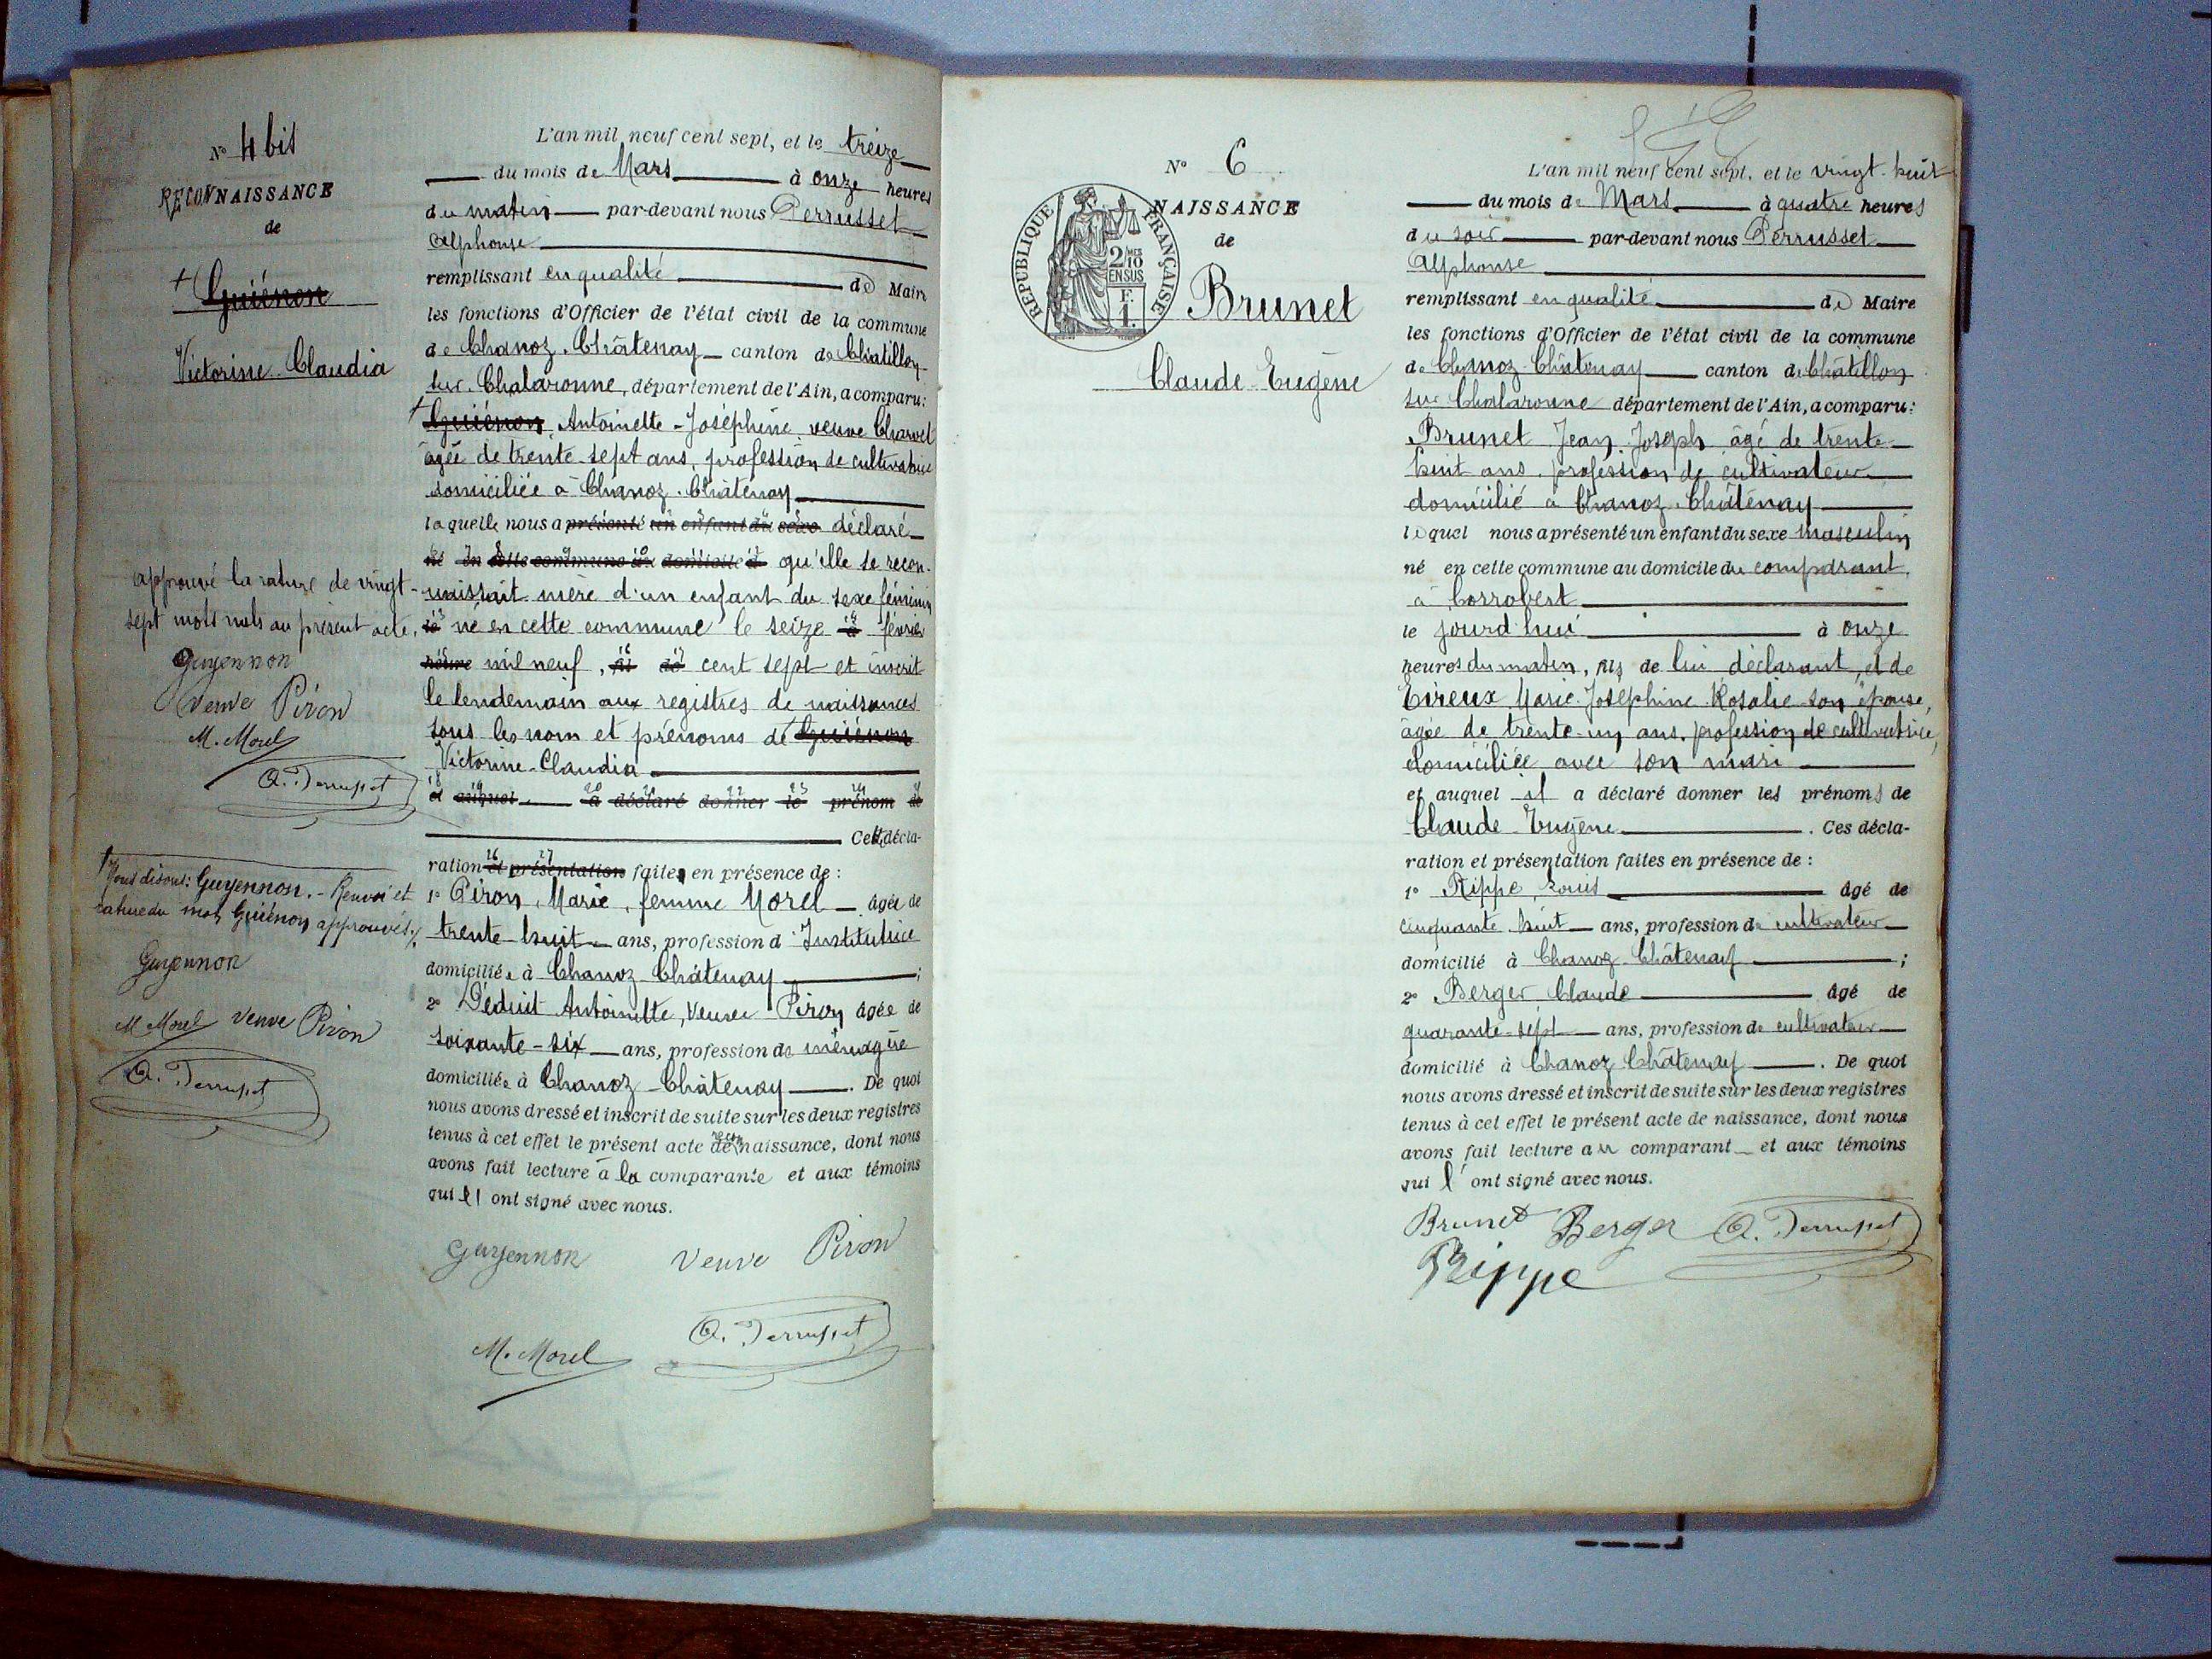 N° 4 bis
RECONNAISSANCE
de
† Guiénon
Victorine-Claudia
approuvé la rature de vingt-
sept mots nuls au présent acte.
Guyennon
veuve Piron
M. Morel
A. Perrusset
† Nous disons: Guyennon. - Renvoi et
rature du mot Guiénon approuvés.
Guyennon
M Morel veuve Piron
A. Perrusset
L'an mil neuf cent sept, et le treize
du mois de Mars à onze heures
du matin par-devant nous Perrusset
Alphonse
remplissant en qualité de Maire
les fonctions d'Officier de l'état civil de la commune
de Chanoz-Châtenay canton de Châtillon-
sur-Chalaronne, département de l'Ain, a comparu:
† Guiénon, Antoinette-Joséphine, veuve Charvet
âgée de trente-sept ans, profession de cultivatrice
domiciliée à Chanoz-Châtenay
laquelle nous a présenté un enfant du sexe déclaré
né en cette commune au domicile d qu'elle se recon-
naissait mère d'un enfant du sexe féminin
le né en cette commune le seize à février
heure mil neuf, fil de cent sept et inscrit
le lendemain aux registres de naissances
sous les nom et prénoms de † Guiénon
Victorine-Claudia
et auquel a déclaré donner le prénom de
Cette décla-
ration et présentation faites en présence de :
1° Piron, Marie, femme Morel âgée de
trente-huit ans, profession d'Institutrice
domiciliée à Chanoz-Châtenay ;
2° Déduit Antoinette, veuve Piron âgée de
soixante-six ans, profession de ménagère
domiciliée à Chanoz-Châtenay . De quoi
nous avons dressé et inscrit de suite sur les deux registres
tenus à cet effet le présent acte de naissance, dont nous
avons fait lecture à la comparante et aux témoins
qui l'ont signé avec nous.
Guyennon veuve Piron
M. Morel A. Perrusset
N° 6
NAISSANCE
de
RÉPUBLIQUE FRANÇAISE
2/10 MES
EN SUS
F.
1.
Brunet
Claude-Eugène
L'an mil neuf cent sept, et le vingt-huit
du mois de Mars à quatre heures
du soir par-devant nous Perrusset
Alphonse
remplissant en qualité de Maire
les fonctions d'Officier de l'état civil de la commune
de Chanoz-Châtenay canton de Châtillon
sur Chalaronne département de l'Ain, a comparu:
Brunet Jean-Joseph âgé de trente-
huit ans, profession de cultivateur
domicilié à Chanoz-Châtenay
lequel nous a présenté un enfant du sexe masculin
né en cette commune au domicile du comparant,
à Corrobert
le jourd'hui à onze
heures du matin, fils de lui déclarant, et de
Eireux Marie-Joséphine-Rosalie son épouse,
âgée de trente-un ans, profession de cultivatrice,
domiciliée avec son mari
et auquel il a déclaré donner les prénoms de
Claude-Eugène . Ces décla-
ration et présentation faites en présence de :
1° Rippe, Louis âgé de
cinquante-huit ans, profession de cultivateur
domicilié à Chanoz-Châtenay ;
2° Berger Claude âgé de
quarante-sept ans, profession de cultivateur
domicilié à Chanoz-Châtenay . De quoi
nous avons dressé et inscrit de suite sur les deux registres
tenus à cet effet le présent acte de naissance, dont nous
avons fait lecture au comparant et aux témoins
qui l'ont signé avec nous.
Brunet Berger A. Perrusset
Rippe